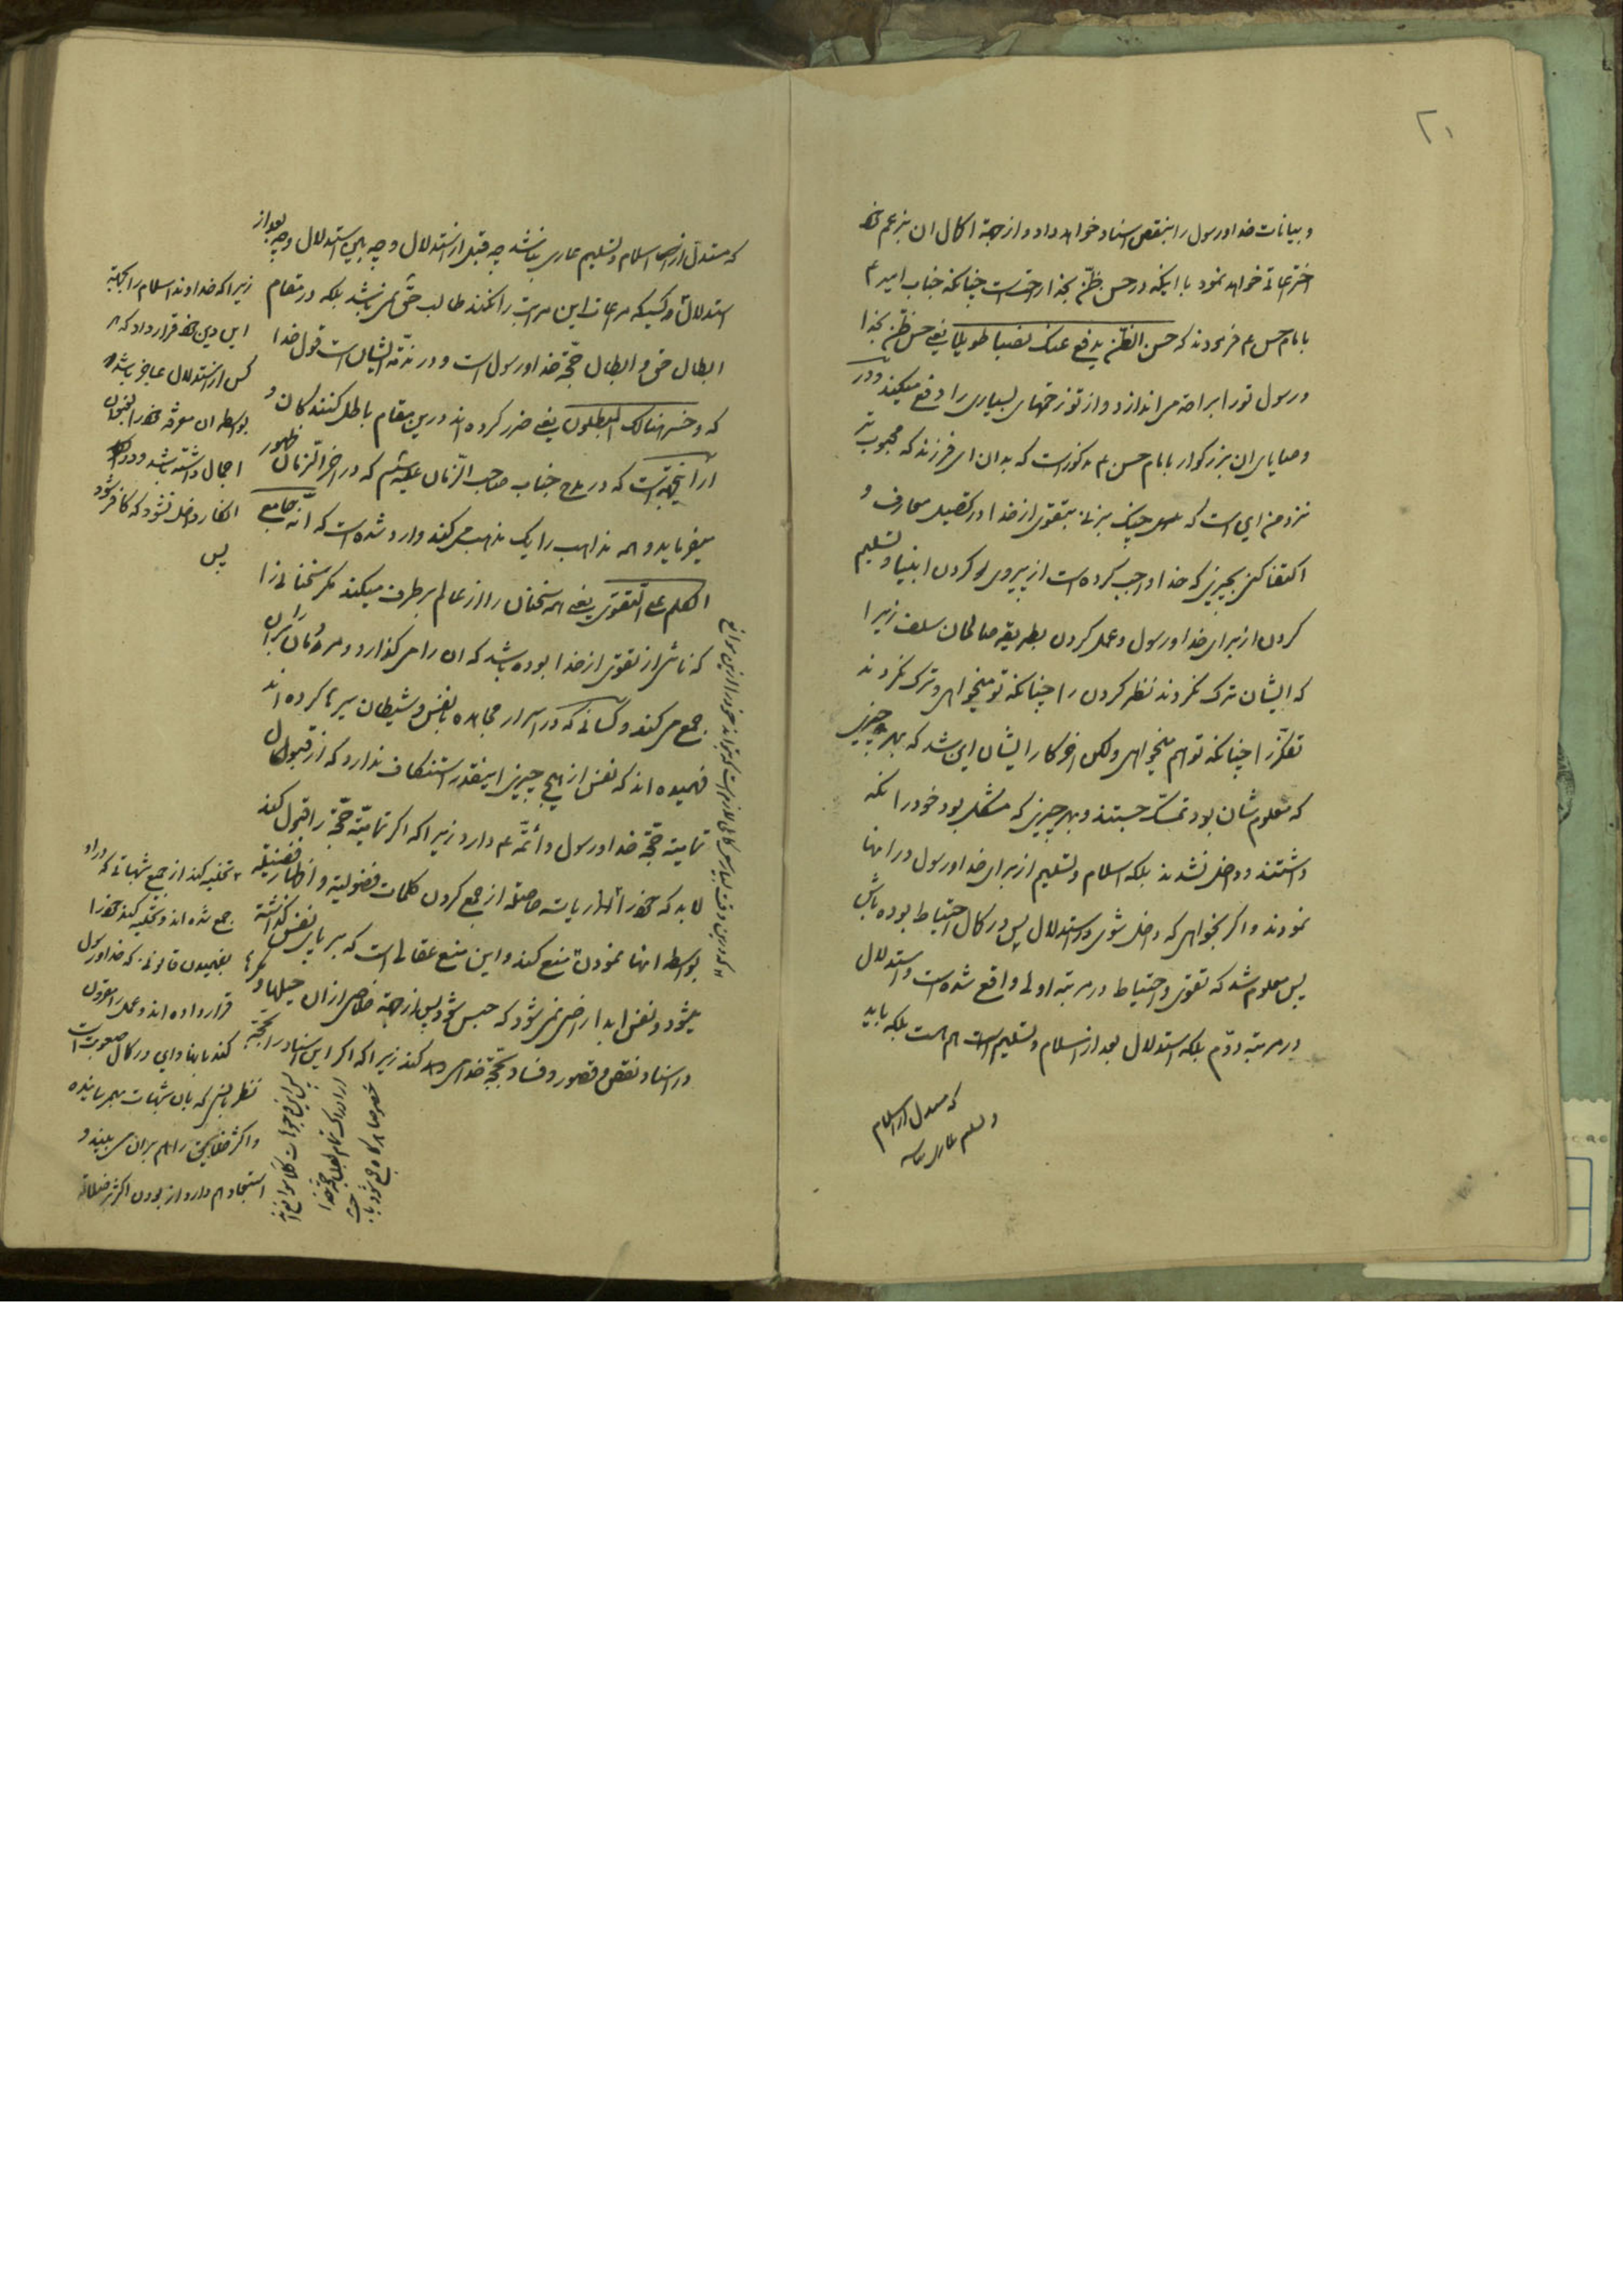 ۲۰
و بیانات خدا و رسول را بنقص اسناد خواهد داد و از جهة اکمال ان بزعم خود
اختراعاتی خواهد نمود با اینکه در حسن ظنّ بخدا راحتست چنانکه جناب امیر ع
بامام حسن ع فرمودند که حسن الظنّ یدفع عنک نصبا طویلا یعنی حسن ظنّ بخدا
و رسول تو را براحة می اندازد و از تو زحمتهای بسیاری را دفع میکند و در
وصایای ان بزرکوار بامام حسن ع مذکور است که بدان ای فرزند که محبوب تر
نزد من این است که چنک بزنی بتقوی از خدا در تحصیل معارف و
اکتفا کنی بچیزی که خدا واجب کرده است از پیروی کردن انبیا و تسلیم
کردن از برای خدا و رسول و عمل کردن بطریقه صالحان سلف زیرا
که ایشان ترک نکردند نظر کردن را چنانکه تو میخواهی و ترک نکردند
تفکّر را چنانکه تو هم میخواهی ولکن اخر کار ایشان این شد که بهر چیزی
که معلومشان بود تمسّک جستند و بهر چیزی که مشکل بود خود را نکه
داشتند و داخل نشدند بلکه اسلام و تسلیم از برای خدا و رسول در انها
نمودند و اکر بخواهی که داخل شوی در استدلال پس در کمال احتیاط بوده باش
پس معلوم شد که تقوی و احتیاط در مرتبه اولی واقع شده است و استدلال
در مرتبه دوّم بلکه استدلال بعد از اسلام و تسلیم هم هست بلکه باید
که مستدل از اسلام
و تسلیم عاری نباشد
که مستدلّ از اسلام و تسلیم عاری نباشد چه قبل از استدلال و چه بین استدلال و چه بعد از
استدلال و کسیکه مراعات این مراتب را نکند طالب حقّ نمی باشد بلکه در مقام
ابطال حق و ابطال حجّة خدا و رسول است و در مذمّة ایشان است قول خدا
که و خسر هنالک المبطلون یعنی ضرر کرده اند در این مقام باطل کنندکان و
از اینجهة است که در مدح جناب صاحب الزّمان علیه السّلم که در اخر الزّمان ظهور
میفرماید و همه مذاهب را یک مذهب می کند وارد شده است که انّه جامع
الکلم علی التّقوی یعنی همه سخنان را از عالم برطرف میکند مکر سخنانی را
که ناشی از تقوی از خدا بوده باشد که ان را می کذارد و مردمان را بران
جمع می کند و کسانی که در اسرار مجاهده با نفس و شیطان سیرها کرده اند
فهمیده اند که نفس از هیچ چیزی اینقدر استنکاف ندارد که از قبول
تمامیّة حجّة خدا و رسول و أئمّه ع دارد زیرا که اکر تمامیّة حجّة را قبول کند
لابد که خود را از ریاسة حاصله از جمع کردن کلمات فضولیّه و اظهار فضیلة
بواسطه انها نمودن منع کند و این منع عقالی است که بر پای نفس کذاشته
میشود و نفس ابدا راضی نمی شود که حبس شود پس از جهة خلاصی از ان حیلها و مکرها
در اسناد نقص و قصور و فساد بحجّة خدا می کند زیرا که اکر این اسناد را بحجّة
زیرا که خداوند اسلام را بجهة
این دین خود قرار داد که هر
کس از استدلال عاجز باشد
بواسطه ان معرفة خود را بنحو
اجمال داشته باشد و در
انکار داخل نشود که کافر شود
پس
تخلیه کند از جمیع شبهاتی که در او
جمع شده اند و تحلیه کند خود را
بفهمیدن قانونی که خدا و رسول
قرار داده اند و عمل را مقرون
کند بانها و این در کمال صعوبت است
نظر بانس که بان شبهات بهم رسانیده
و اکثر خلایق را هم بران می بیند و
استبعاد هم دارد از بودن اکثر در ضلالة